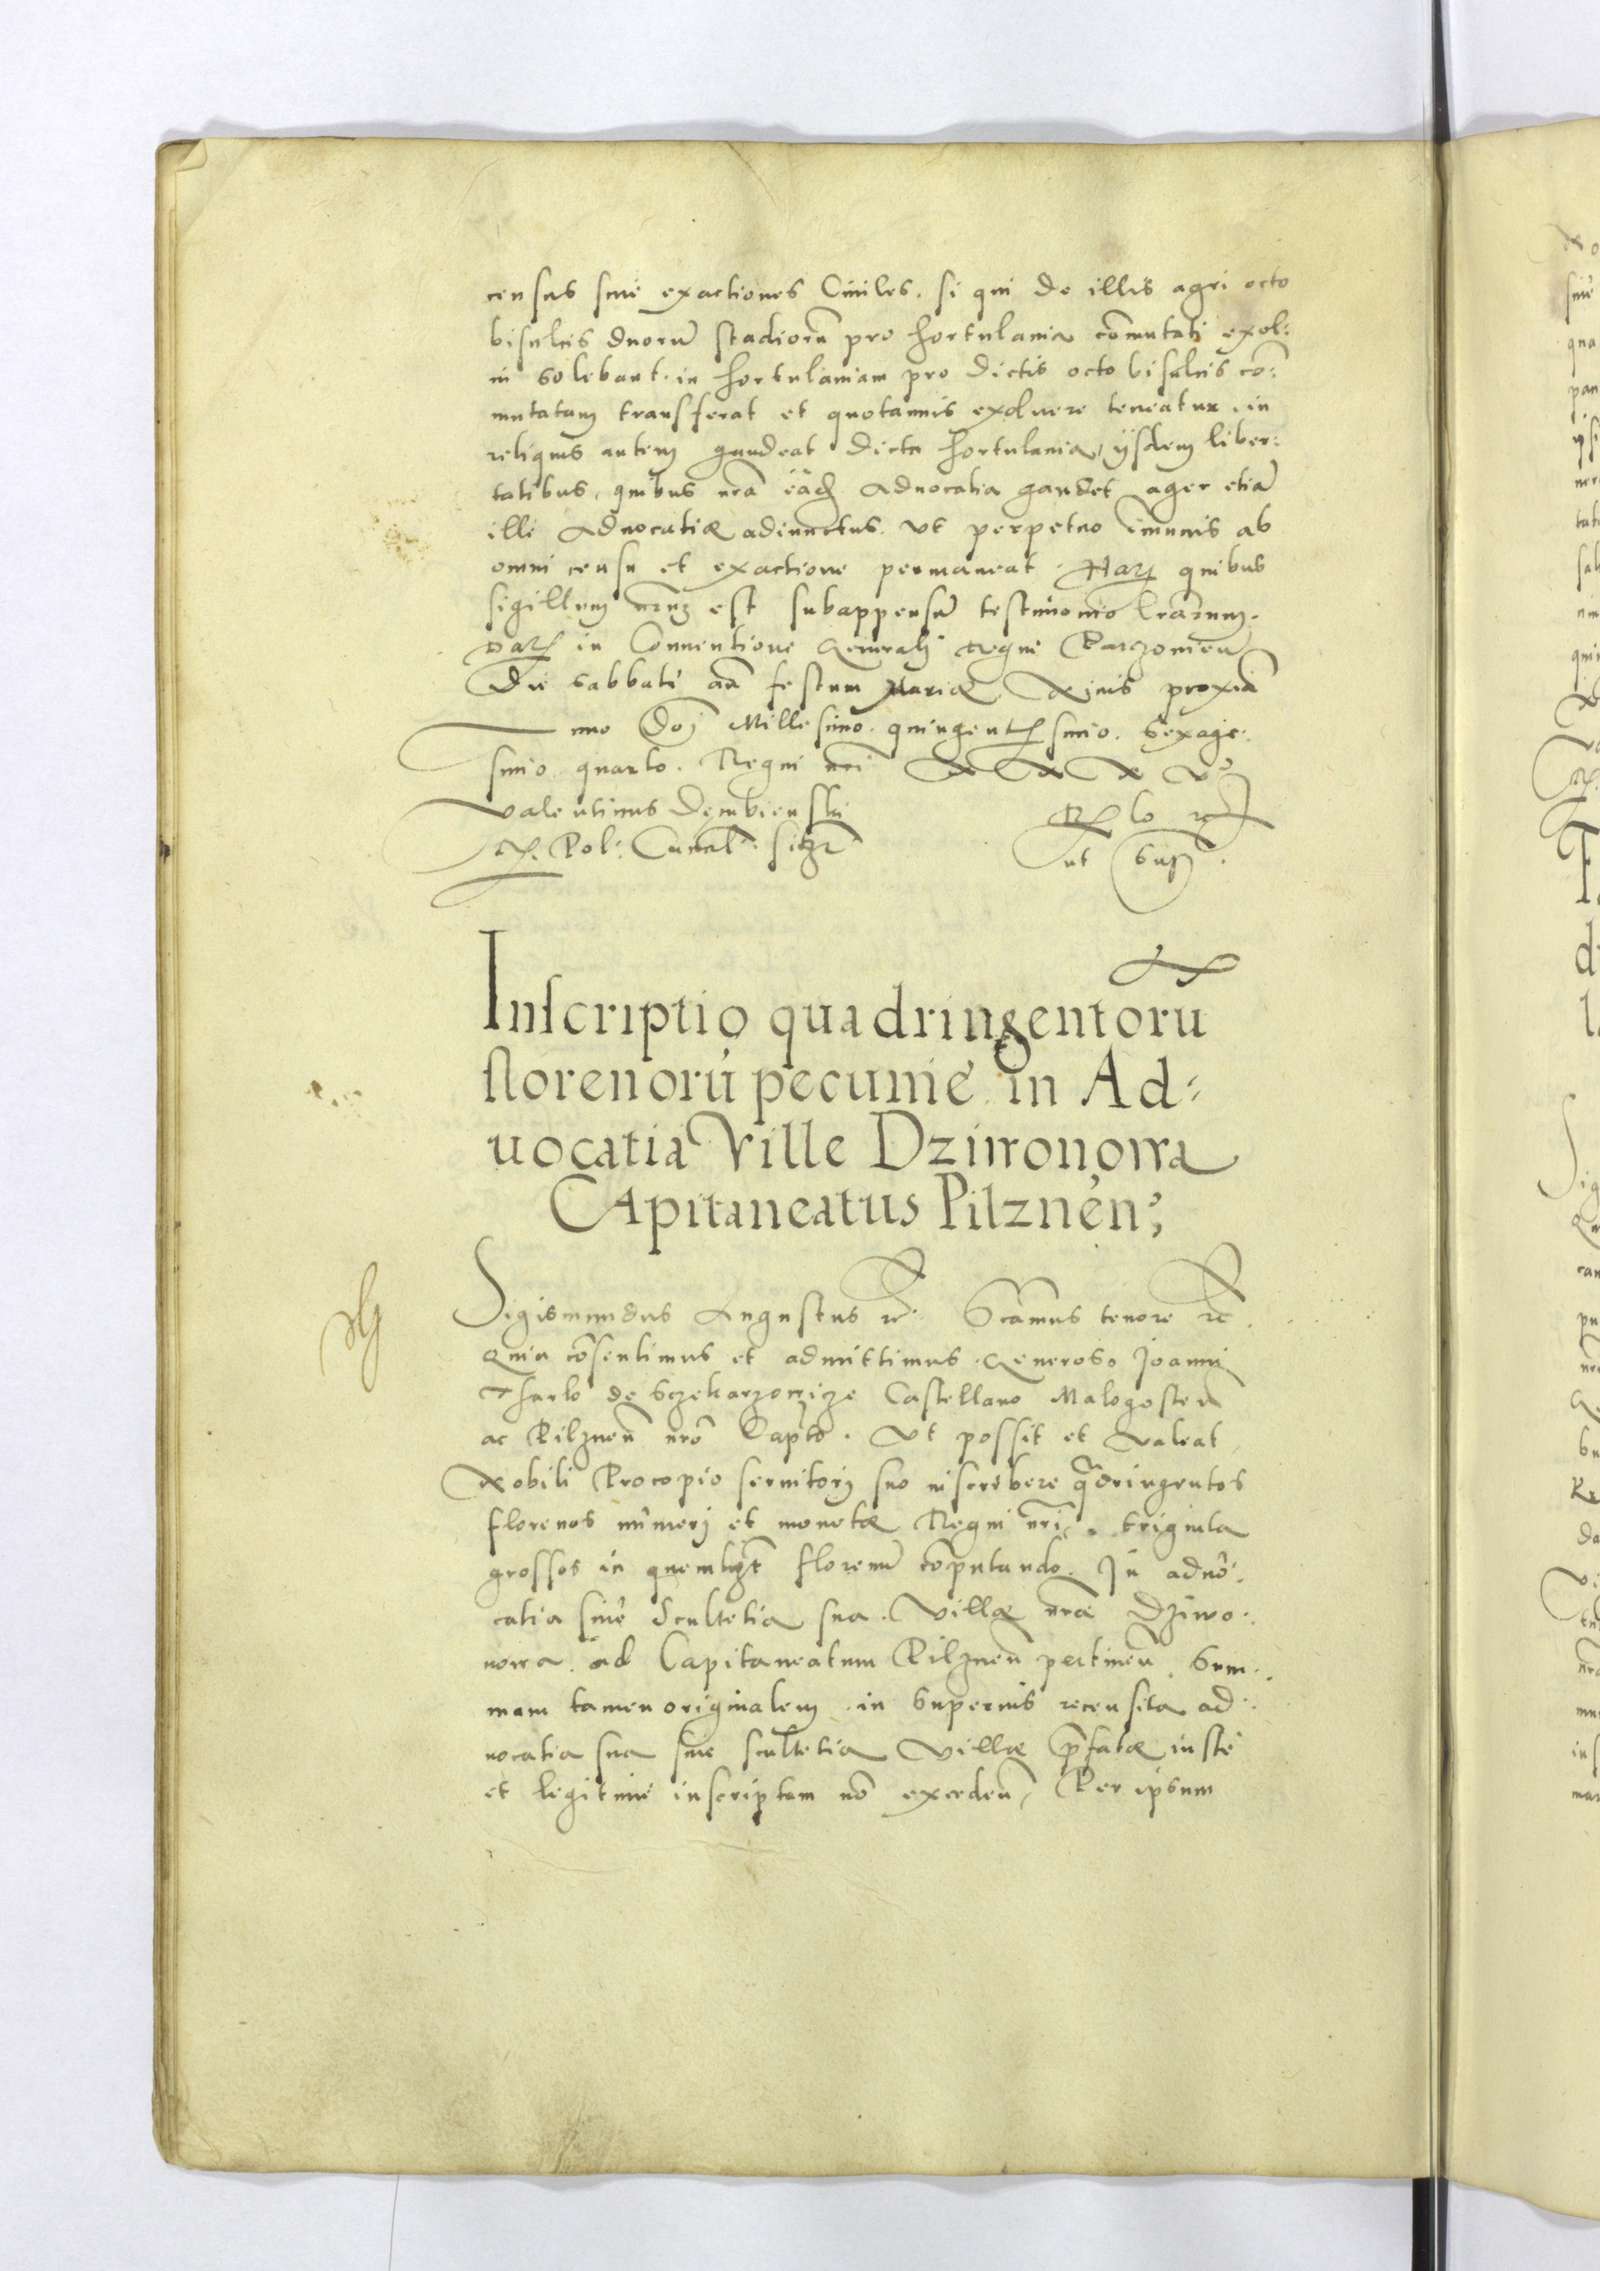 census siue exactiones Ciuiles. si qui de illis agri octo
bisulcis duorũ stadiorũ pro hortulania cõmutati exol:
ui solebant. in hortulaniam pro dictis octo bisulcis cõ:
mutatam transferat et quotannis exoluere teneatur. in
reliquis autem gaudeat dicta hortulania, ijsdem liber:
tatibus, quibus nrã eãdẽ Aduocatia gaudet ager etiã
illi Aduocatiæ adiunctus. Vt perpetuo imunis ab
omni censu et exactione permaneat. Harũ quibus
sigillum nrũm est subappensũ testimonio lrãrum.
Dat̃ in Conuentione Generali Regni Parczouieñ
Die Sabbati añ festum Mariæ proximã
nno Doj Millesimo. quingentesimo. Sexage.
simo quarto. Regni nri XXXV
Valentinus Dembienski
R. Pol: Cancel: sszt
ut supra.
Inscriptio quadringentorũ
florenorũ pecunie in Ad:
uocatia Ville Dziwonowa
Capitaneatus Pilzneñ;
Sigismundus Augustus rc̃. Scãmus tenore rc̃.
Quia cõsentimus et admittimus. Generoso Joanni
Tharlo de Sczekarzowicze Castellano Malogosteñ
ac Pilzneñ nrõ Capto. Vt possit et Valeat
Nobili Procopio seruitorj suo inscribere qdringentos
florenos nũmerj et monetæ Regni nri. triginta
grossos in quemlibet florenũ cõputando. In aduo:
catia siue Scultetia sua. Villæ nrã Dziwo:
nowa. ad Capitaneatum Pilzneñ pertineñ. Sum:
mam tamen originalem in superius recensita ad:
uocatia sua siue scultetia Villæ p̃fatæ iuste
et legitime inscriptam nõ excedeñ, Per ipsum